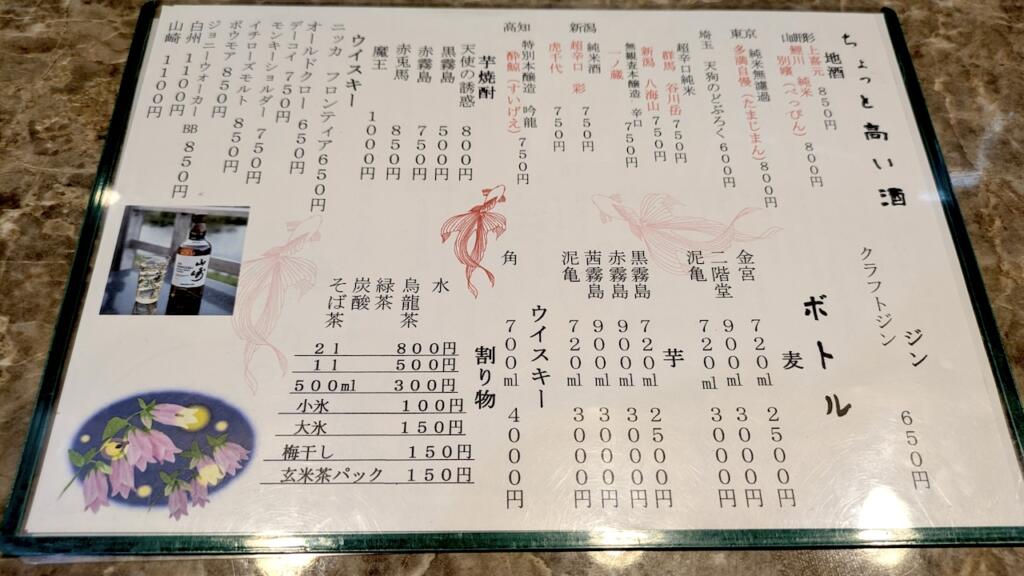 ちょっと高い酒
地酒
山形 上喜元 850円
鯉川 純米
別嬪（べっぴん） 800円
東京 純米無濾過
多満自慢（たまじまん） 800円
埼玉 天狗のどぶろく 600円
超辛口純米
群馬 谷川岳 750円
新潟 八海山 750円
無鑑査本醸造 辛口
一ノ蔵 750円
新潟 純米酒
超辛口 彩 750円
虎千代 750円
高知 特別本醸造 吟龍
酔鯨（すいげえ） 750円
芋焼酎
天使の誘惑 800円
黒霧島 500円
赤霧島 750円
赤兎馬 850円
魔王 1000円
ウイスキー
ニッカ フロンティア 650円
オールドクロー 650円
デーコイ 750円
モンキーショルダー 750円
イチローズモルト 850円
ボウモア 850円
ジョニーウォーカーBB 850円
白州 1100円
山崎 1100円
山崎
ジン
クラフトジン 650円
ボトル
麦
金宮 720ml 2500円
二階堂 900ml 3000円
泥亀 720ml 3000円
芋
黒霧島 720ml 2500円
赤霧島 900ml 3000円
茜霧島 900ml 3000円
泥亀 720ml 3000円
ウイスキー
角 700ml 4000円
割り物
水
烏龍茶
緑茶
炭酸
そば茶
2l 800円
1l 500円
500ml 300円
小氷 100円
大氷 150円
梅干し 150円
玄米茶パック 150円